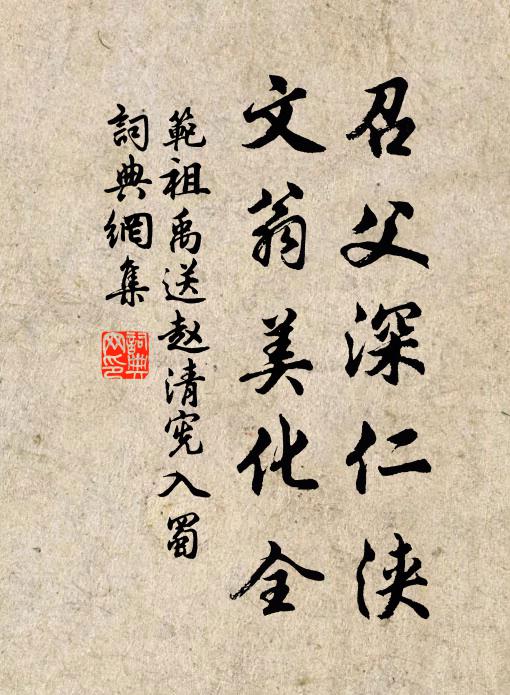 召父深仁浃
文翁美化全
範祖禹送赵清宪入蜀
詞典網集
詞典網印